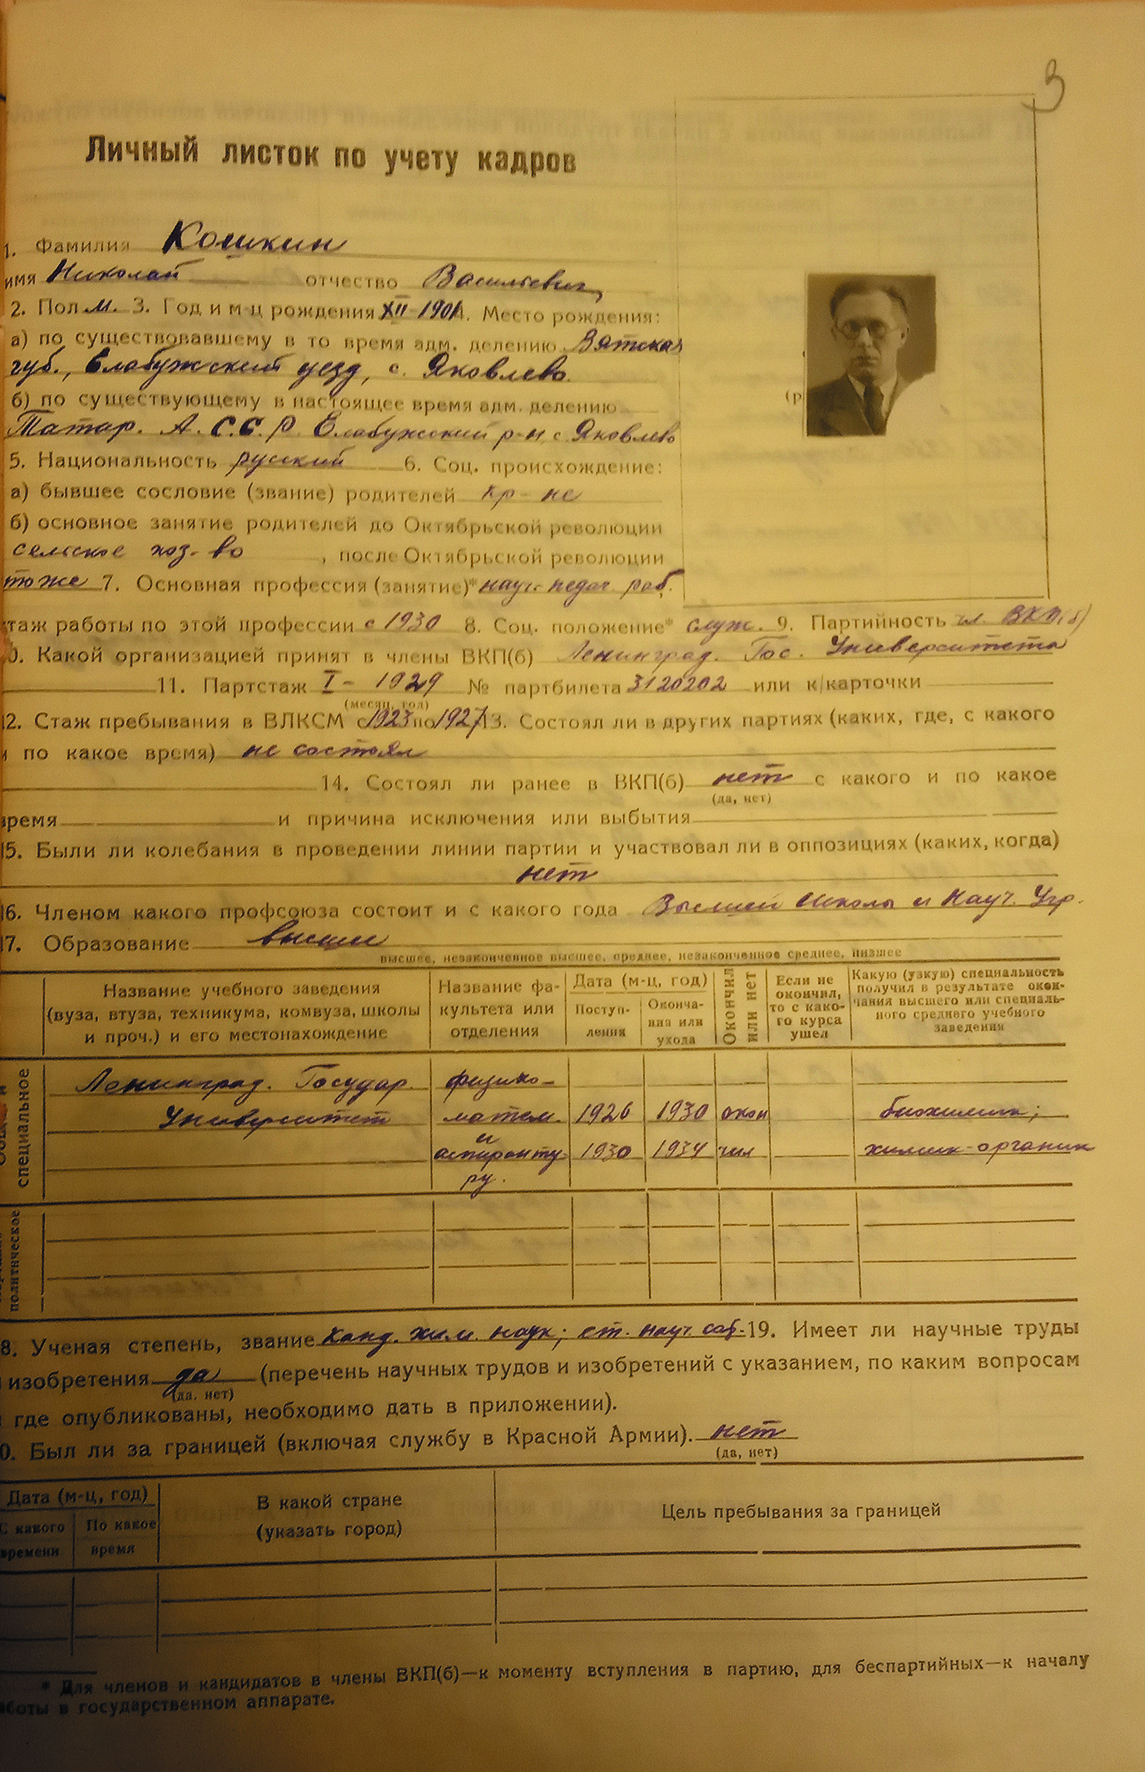 3
Личный листок по учету кадров
1. Фамилия Кошкин
имя Николай отчество Васильевич
2. Пол м. 3. Год и м-ц рождения XII-1901 4. Место рождения:
а) по существовавшему в то время адм. делению Вятская
губ., Елабужский уезд, с. Яковлево.
б) по существующему в настоящее время адм. делению
Татар. А.С.С.Р. Елабужский р-н, с. Яковлево
5. Национальность русский 6. Соц. происхождение:
а) бывшее сословие (звание) родителей кр-не
б) основное занятие родителей до Октябрьской революции
сельское хоз-во, после Октябрьской революции
тоже 7. Основная профессия (занятие)* науч.-педаг. раб.
таж работы по этой профессии с 1930 8. Соц. положение* служ. 9. Партийность чл. ВКП(б)
0. Какой организацией принят в члены ВКП(б) Ленинград. Гос. Университета
11. Партстаж I - 1929 № партбилета 3120202 или к/карточки
(месяц, год)
12. Стаж пребывания в ВЛКСМ с 1923 по 1927 13. Состоял ли в других партиях (каких, где, с какого
и по какое время) не состоял
14. Состоял ли ранее в ВКП(б) нет с какого и по какое
(да, нет)
время и причина исключения или выбытия
15. Были ли колебания в проведении линии партии и участвовал ли в оппозициях (каких, когда)
нет
16. Членом какого профсоюза состоит и с какого года Высшей школы и Науч. Учр.
17. Образование высшее
высшее, незаконченное высшее, среднее, незаконченное среднее, низшее
Название учебного заведения (вуза, втуза, техникума, комвуза, школы и проч.) и его местонахождение
Название факультета или отделения
Дата (м-ц, год)
Поступления
Окончания или ухода
Окончил или нет
Если не окончил, то с какого курса ушел
Какую (узкую) специальность получил в результате окончания высшего или специального среднего учебного заведения
специальное
Ленинград. Государ. физико-
Университет матем. 1926 1930 окон биохимик;
и
аспиранту- 1930 1934 чил химик-органик
ру.
политическое
8. Ученая степень, звание Канд. хим. наук; ст. науч. сот. 19. Имеет ли научные труды
изобретения да (перечень научных трудов и изобретений с указанием, по каким вопросам
(да, нет)
где опубликованы, необходимо дать в приложении).
0. Был ли за границей (включая службу в Красной Армии). нет
(да, нет)
Дата (м-ц, год)
С какого времени
По какое время
В какой стране (указать город)
Цель пребывания за границей
* Для членов и кандидатов в члены ВКП(б)—к моменту вступления в партию, для беспартийных—к началу
боты в государственном аппарате.